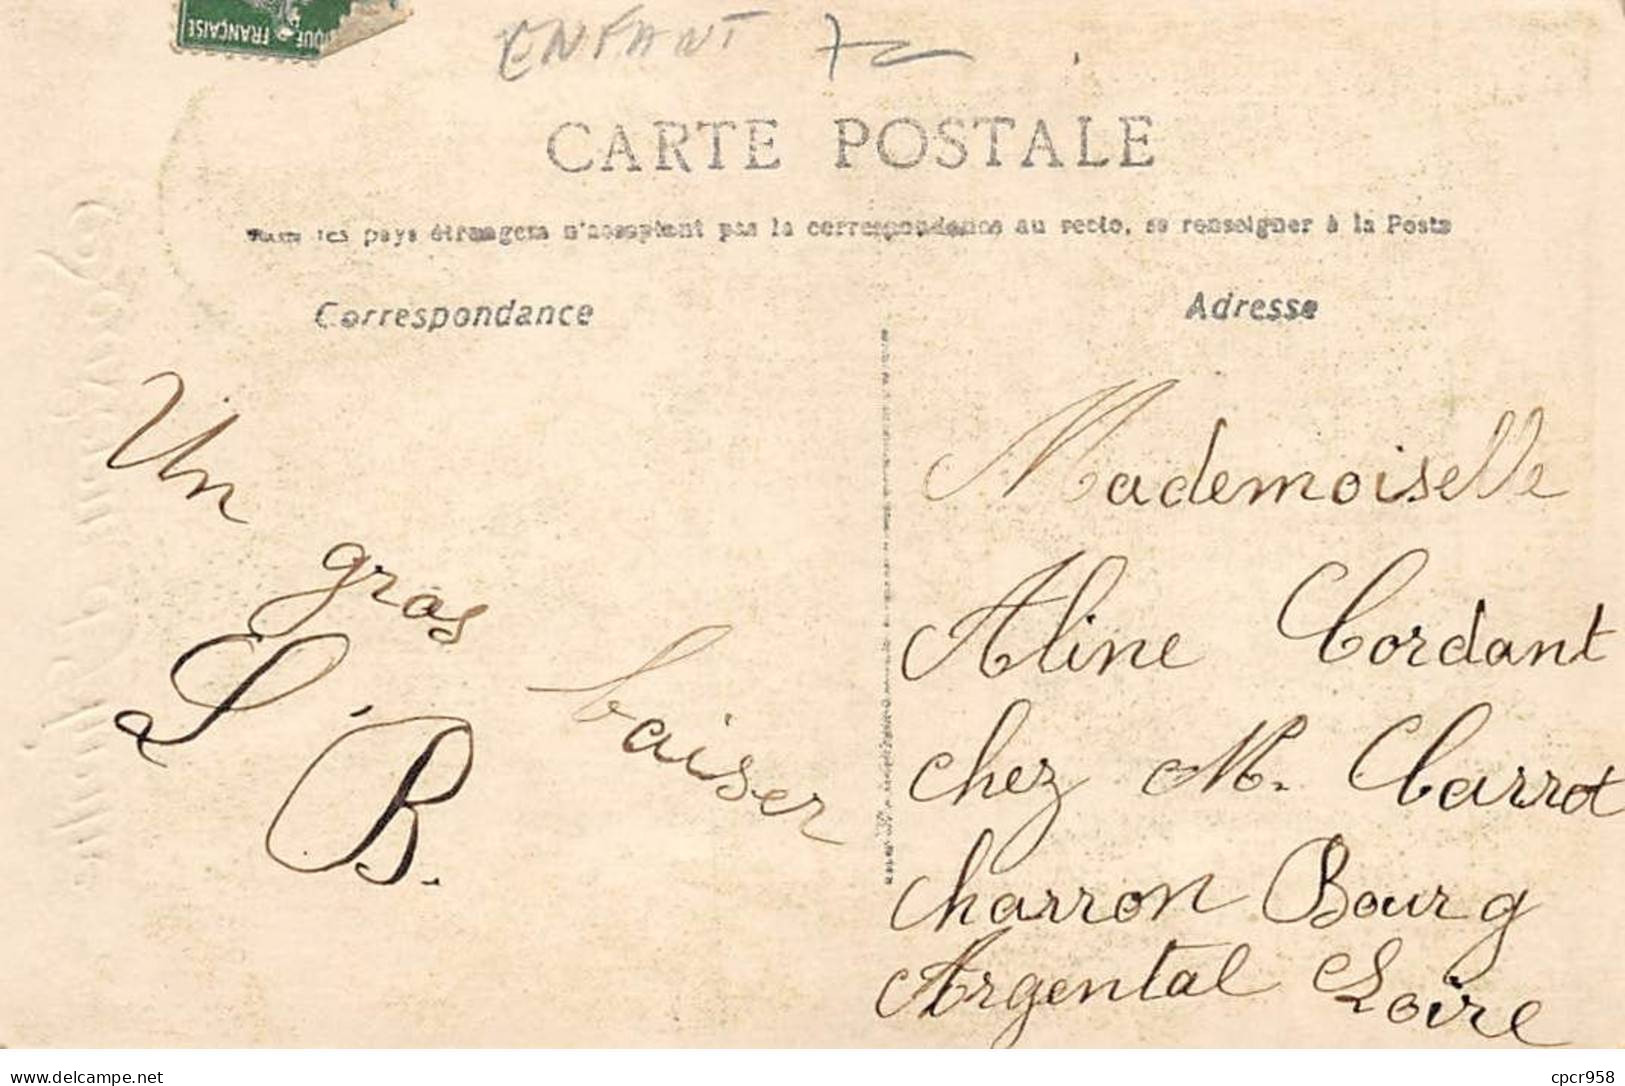 QUE FRANÇAISE
ENFANT
CARTE POSTALE
les pays étrangers n'acceptent pas la correspondance au recto, se renseigner à la Poste
Correspondance
Un
gros
baiser
S B.
Adresse
Mademoiselle
Aline Cordant
chez M. Carrot
charron Bourg
Argental Loire
delcampe.net
cpcr958